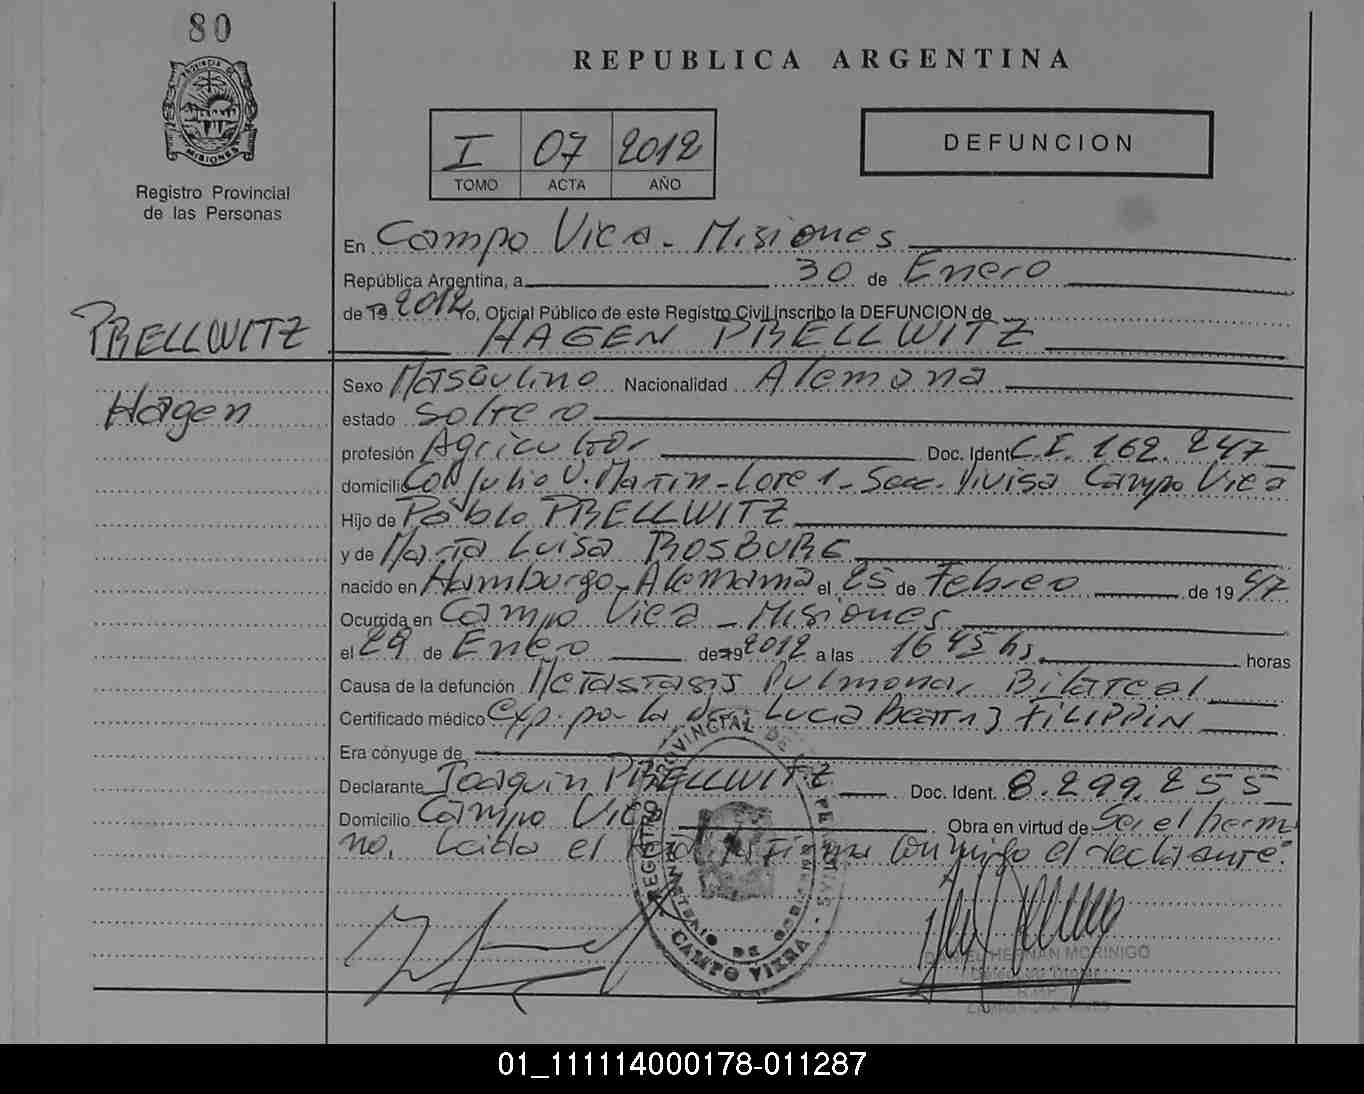 80
PROVINCIA DE
MISIONES
Registro Provincial
de las Personas
REPUBLICA ARGENTINA
I 07 2012
TOMO ACTA AÑO
DEFUNCION
En Campo Viera - Misiones
República Argentina, a 30 de Enero
de 19 2012 Yo, Oficial Público de este Registro Civil inscribo la DEFUNCION de
PRELLWITZ
Hagen
HAGEN PRELLWITZ
Sexo Masculino Nacionalidad Alemana
estado Soltero
profesión Agricultor Doc. Ident. C.I. 162.247
domicilio Col Julio U. Martin - Lote 1 - Secc. Divisa Campo Viera
Hijo de Pablo PRELLWITZ
y de María Luisa ROSBURG
nacido en Hamburgo - Alemania el 25 de Febrero de 19 47
Ocurrida en Campo Viera - Misiones
el 29 de Enero de 19 2012 a las 16 45 hs horas
Causa de la defunción Metastasis Pulmonar Bilateal
Certificado médico Exp. por la dra. Lucia Beatriz FILIPPIN
Era cónyuge de
Declarante Joaquin PRELLWITZ Doc. Ident. 8.299.255
Domicilio Campo Viera Obra en virtud de Ser el herma
no. Leida el acta la firma conmigo el declarante.
REGISTRO PROVINCIAL DE LAS PERSONAS
MINISTERIO DE GOBIERNO
CAMPO VIERA
DANIEL HERNAN MORINIGO
01_111114000178-011287